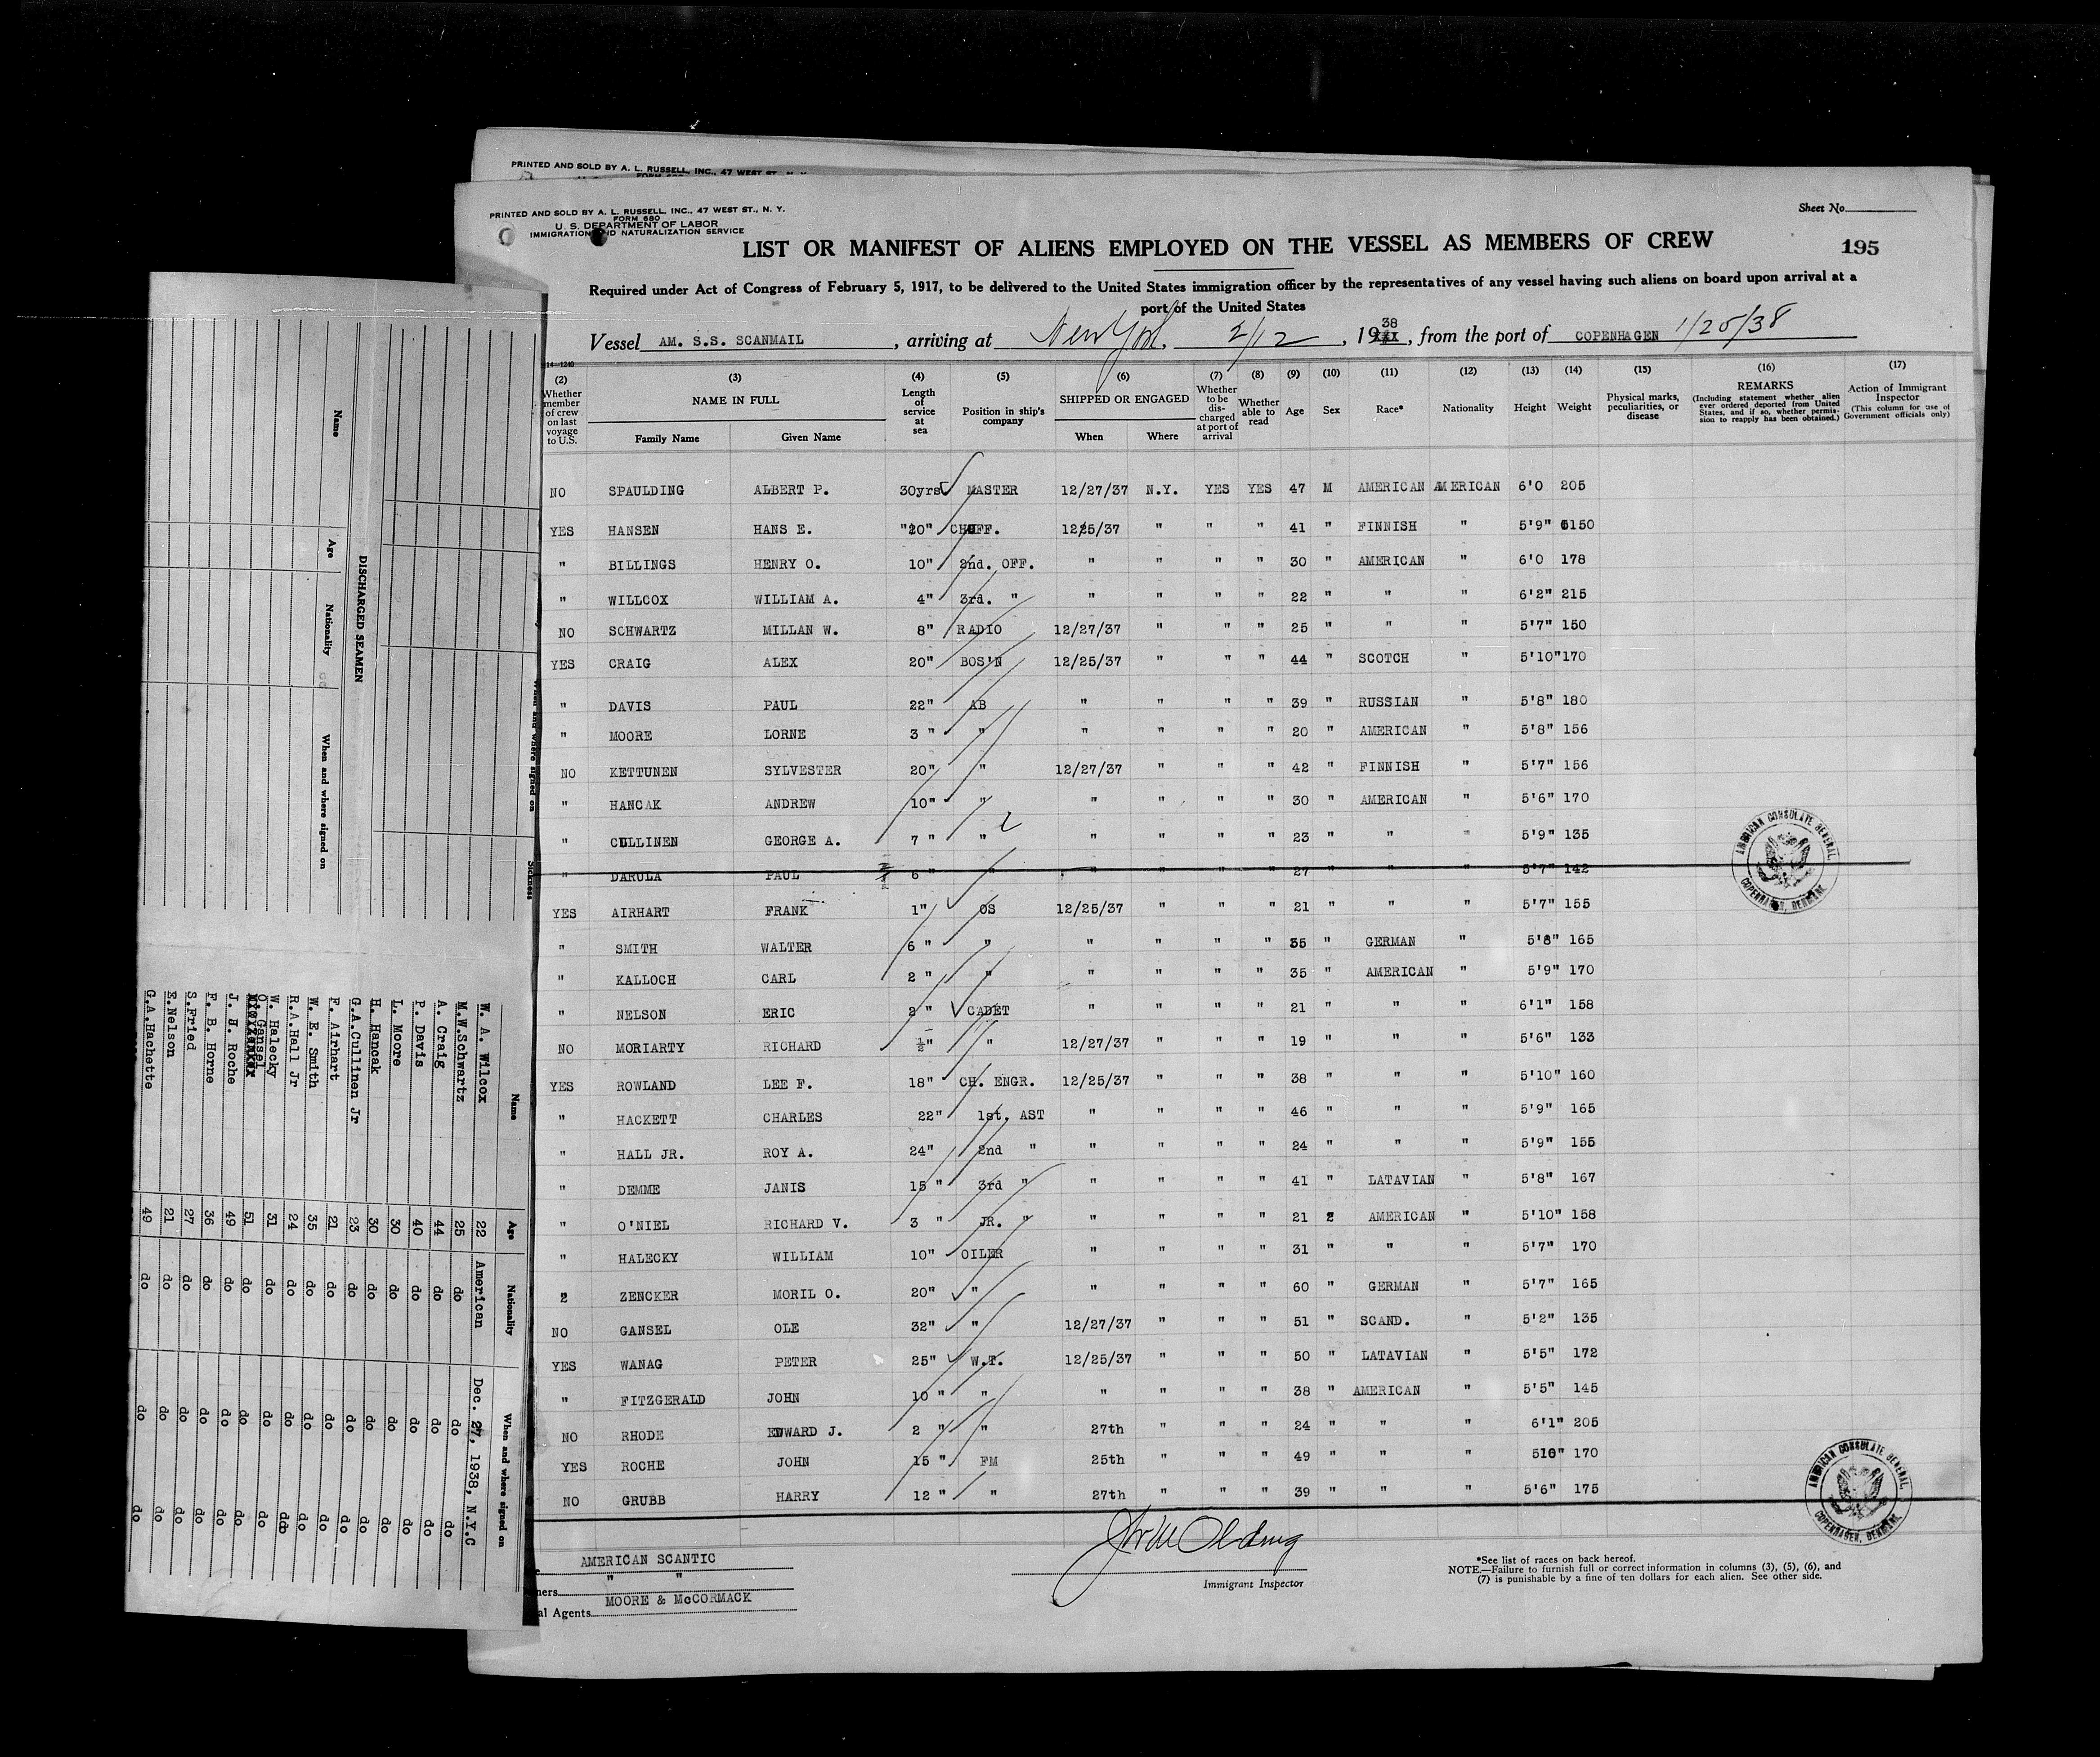 PRINTED AND SOLD BY A. L. RUSSELL, INC., 47 WEST ST., N. Y.
PRINTED AND SOLD BY A. L. RUSSELL, INC., 47 WEST ST., N. Y.
FORM 680
U. S. DEPARTMENT OF LABOR
IMMIGRATION AND NATURALIZATION SERVICE
Sheet No.
195
LIST OR MANIFEST OF ALIENS EMPLOYED ON THE VESSEL AS MEMBERS OF CREW
Required under Act of Congress of February 5, 1917, to be delivered to the United States immigration officer by the representatives of any vessel having such aliens on board upon arrival at a
port of the United States
Vessel AM. S.S. SCANMAIL, arriving at New York, 2/12, 1938, from the port of COPENHAGEN 1/25/38
14—1240
(2) (3) (4) (5) (6) (7) (8) (9) (10) (11) (12) (13) (14) (15) (16) (17)
Whether member of crew on last voyage to U.S.
NAME IN FULL
Family Name Given Name
Length of service at sea
Position in ship's company
SHIPPED OR ENGAGED
When Where
Whether to be discharged at port of arrival
Whether able to read
Age Sex Race* Nationality Height Weight
Physical marks, peculiarities, or disease
REMARKS
(Including statement whether alien ever ordered deported from United States, and if so, whether permission to reapply has been obtained.)
Action of Immigrant Inspector
(This column for use of Government officials only)
NO SPAULDING ALBERT P. 30yrs MASTER 12/27/37 N.Y. YES YES 47 M AMERICAN AMERICAN 6'0 205
YES HANSEN HANS E. "20" CHOFF. 1225/37 " " " 41 " FINNISH " 5'9" 150
" BILLINGS HENRY O. 10" 2nd. OFF. " " " " 30 " AMERICAN " 6'0 178
" WILLCOX WILLIAM A. 4" 3rd. " " " " " 22 " " " 6'2" 215
NO SCHWARTZ MILLAN W. 8" RADIO 12/27/37 " " " 25 " " " 5'7" 150
YES CRAIG ALEX 20" BOS'N 12/25/37 " " " 44 " SCOTCH " 5'10" 170
" DAVIS PAUL 22" AB " " " " 39 " RUSSIAN " 5'8" 180
" MOORE LORNE 3 " " " " " " 20 " AMERICAN " 5'8" 156
NO KETTUNEN SYLVESTER 20" " 12/27/37 " " " 42 " FINNISH " 5'7" 156
" HANCAK ANDREW 10" " " " " " 30 " AMERICAN " 5'6" 170
" CULLINEN GEORGE A. 7 " " " " " " 23 " " " 5'9" 135
" DARULA PAUL 6 " " " " " " 27 " " " 5'7" 142
YES AIRHART FRANK 1" OS 12/25/37 " " " 21 " " " 5'7" 155
" SMITH WALTER 6 " " " " " " 35 " GERMAN " 5'8" 165
" KALLOCH CARL 2 " " " " " " 35 " AMERICAN " 5'9" 170
" NELSON ERIC 2 " CADET " " " " 21 " " " 6'1" 158
NO MORIARTY RICHARD ½" " 12/27/37 " " " 19 " " " 5'6" 133
YES ROWLAND LEE F. 18" CH. ENGR. 12/25/37 " " " 38 " " " 5'10" 160
" HACKETT CHARLES 22" 1st. AST " " " " 46 " " " 5'9" 165
" HALL JR. ROY A. 24" 2nd " " " " " 24 " " " 5'9" 155
" DEMME JANIS 15 " 3rd " " " " " 41 " LATAVIAN " 5'8" 167
" O'NIEL RICHARD V. 3 " JR. " " " " " 21 2 AMERICAN " 5'10" 158
" HALECKY WILLIAM 10" OILER " " " " 31 " " " 5'7" 170
2 ZENCKER MORIL O. 20" " " " " " 60 " GERMAN " 5'7" 165
NO GANSEL OLE 32" " 12/27/37 " " " 51 " SCAND. " 5'2" 135
YES WANAG PETER 25" W.T. 12/25/37 " " " 50 " LATAVIAN " 5'5" 172
" FITZGERALD JOHN 10 " " " " " " 38 " AMERICAN " 5'5" 145
NO RHODE EDWARD J. 2 " " 27th " " " 24 " " " 6'1" 205
YES ROCHE JOHN 15 " FM 25th " " " 49 " " " 510" 170
NO GRUBB HARRY 12 " " 27th " " " 39 " " " 5'6" 175
AMERICAN CONSULATE GENERAL
COPENHAGEN, DENMARK
AMERICAN CONSULATE GENERAL
COPENHAGEN, DENMARK
AMERICAN SCANTIC
" "
ners
al Agents MOORE & McCORMACK
Immigrant Inspector
*See list of races on back hereof.
NOTE.—Failure to furnish full or correct information in columns (3), (5), (6), and
(7) is punishable by a fine of ten dollars for each alien. See other side.
DISCHARGED SEAMEN
Name Age Nationality When and where signed on
When and where signed on Sickness
Name Age Nationality When and where signed on
W. A. Wilcox 22 American Dec. 27, 1938, N.Y.C
M.W.Schwartz 25 do do do
A. Craig 44 do do do
P. Davis 40 do do do
L. Moore 30 do do do
H. Hancak 30 do do do
G.A.Cullinen Jr 23 do do do
F. Airhart 21 do do do
W. E. Smith 35 do do do
R.A.Hall Jr 24 do do do
W. Halecky 31 do do do
O. Gansel 51 do do do
J. J. Roche 49 do do do
F. B. Horne 36 do do do
S.Fried 27 do do do
E.Nelson 21 do do do
G.A.Hachette 49 do do do